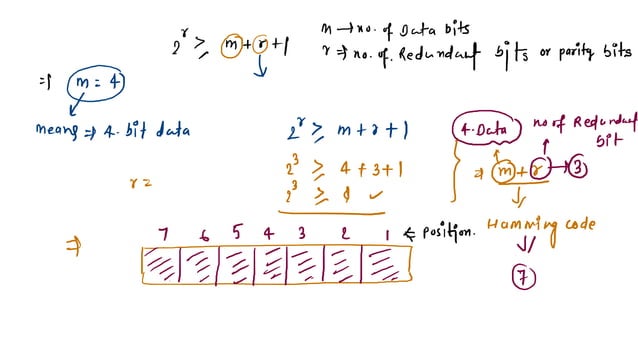 2^r ≥ m + r + 1
m → no. of Data bits
r ⇒ no. of Redundant bits or parity bits
⇒ m = 4
means ⇒ 4. bit data
2^r ≥ m + r + 1
2^3 ≥ 4 + 3 + 1
2^3 ≥ 8 ✓
r =
4. Data
no of Redundant
bit
⇒ m + r → 3
Hamming code
7
⇒
7 6 5 4 3 2 1 ← position.